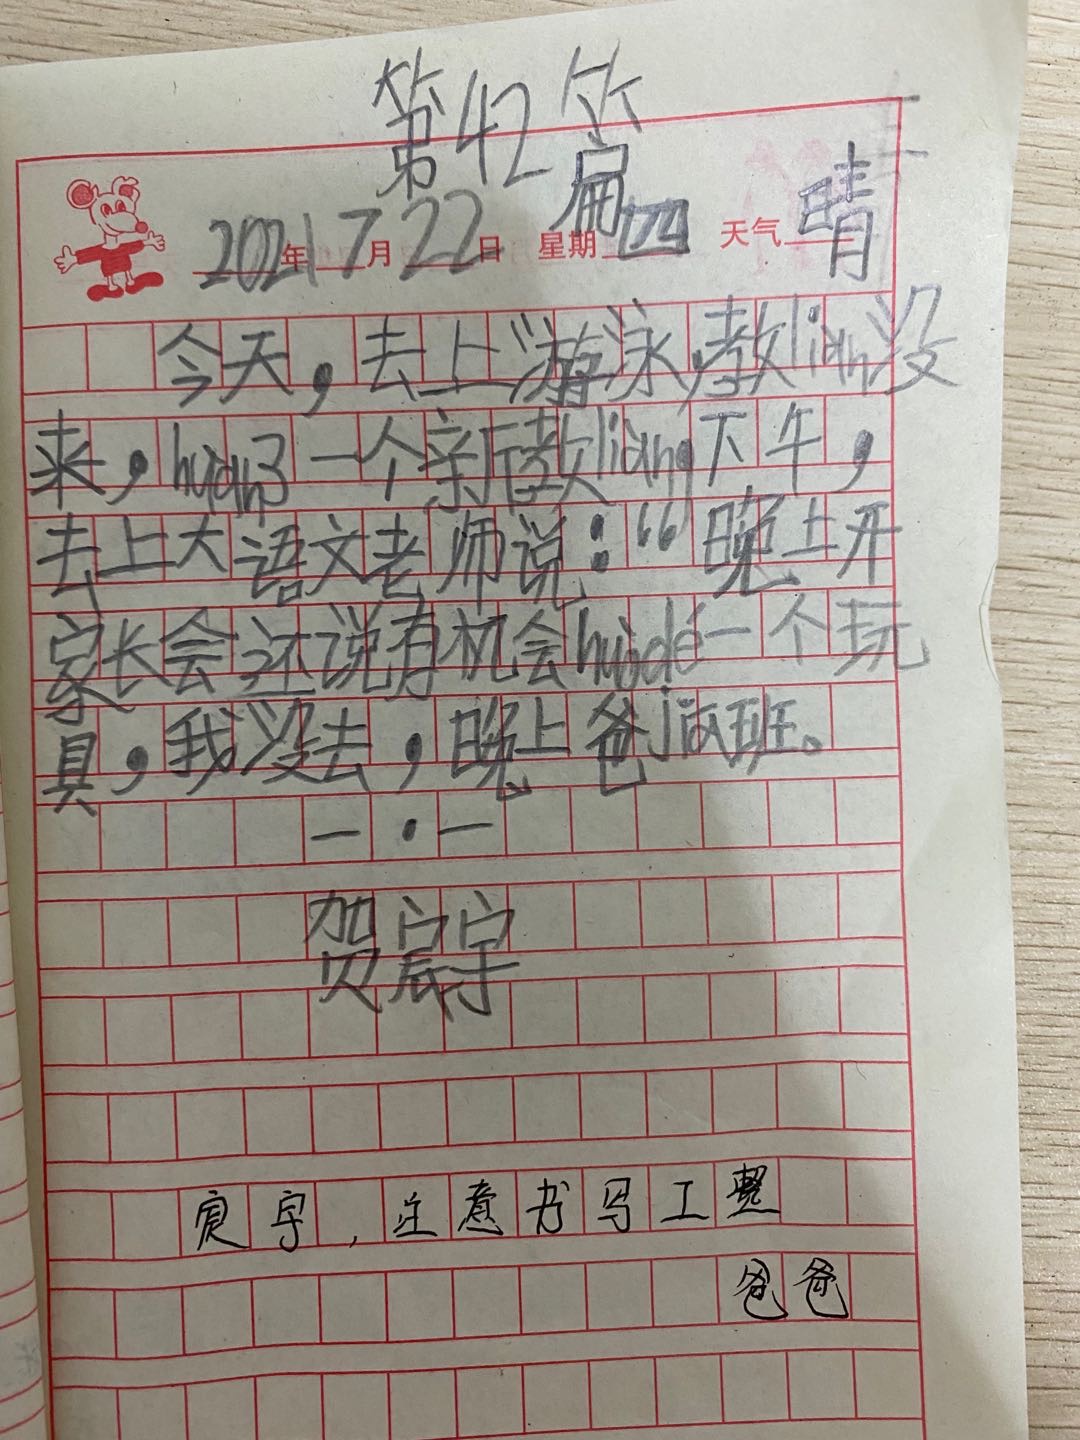 第42篇
2021年7月22日 星期四 天气晴
今天，去上游泳，教lian没
来，huan3一个新教lian，下午，
去上大语文老师说：“晚上开
家长会还说有机会huòdé一个玩
具，我没去，晚上爸jiā班。
一·一
贺宸宇
宸宇，注意书写工整
爸爸